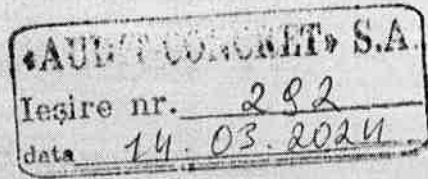 «AUDIT CONCRET» S.A.
Ieşire nr. 292
data 14.03.2024